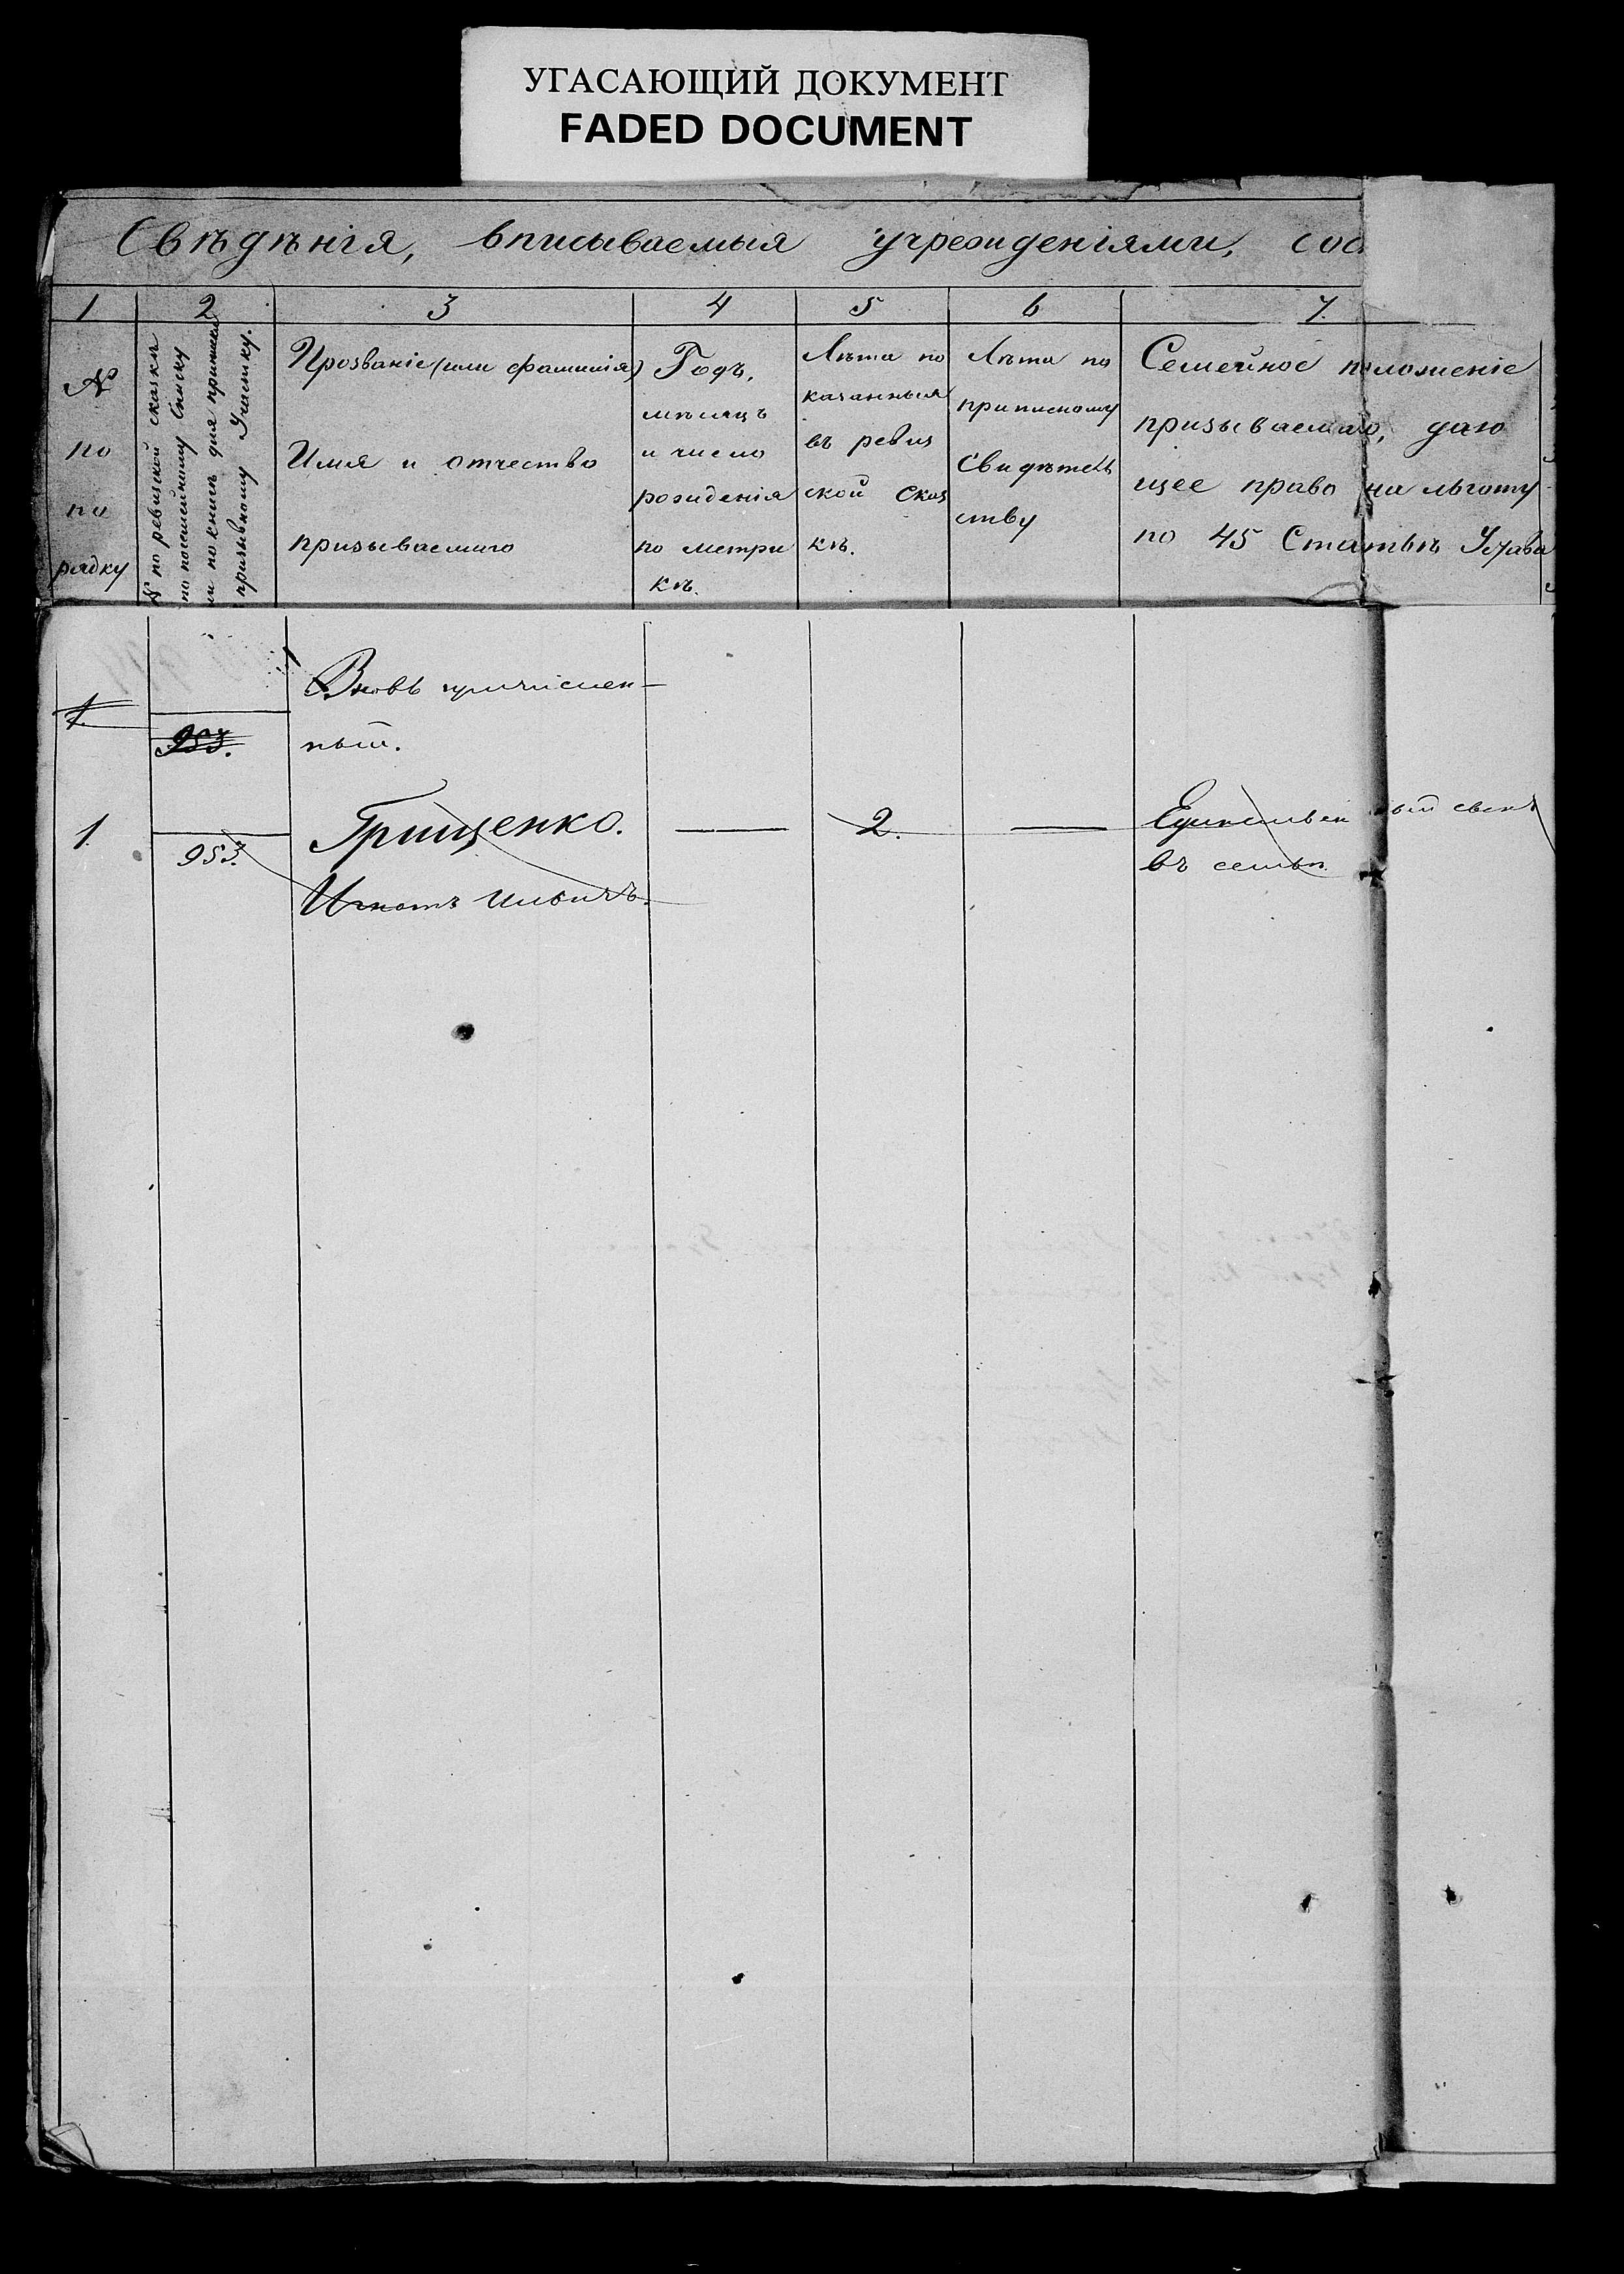 УГАСАЮЩИЙ ДОКУМЕНТ
FADED DOCUMENT
Свѣдѣнія, вписываемыя учрежденіями, сос
1 2 3 4 5 6 7
№
по
по
рядку
№ по ревизской сказкѣ
по посемейному Списку
или по книгѣ для приписки
къ призывному Участку.
Прозваніе (или фамилія)
Имя и отчество
призываемаго
Годъ,
мѣсяцъ
и число
рожиденія
по метри
кѣ.
Лѣта по
казанныя
въ ревиз
ской Сказ
кѣ.
Лѣта по
приписному
Свидѣтель
ству
Семейное положеніе
призываемаго, даю
щее право на льготу
по 45 Статьѣ Устава
1.
Вновь причислен-
953.
ный.
1. Грищенко. — 2. — Единственный сынъ
953. въ семьѣ.
Игнатъ Ильичъ.